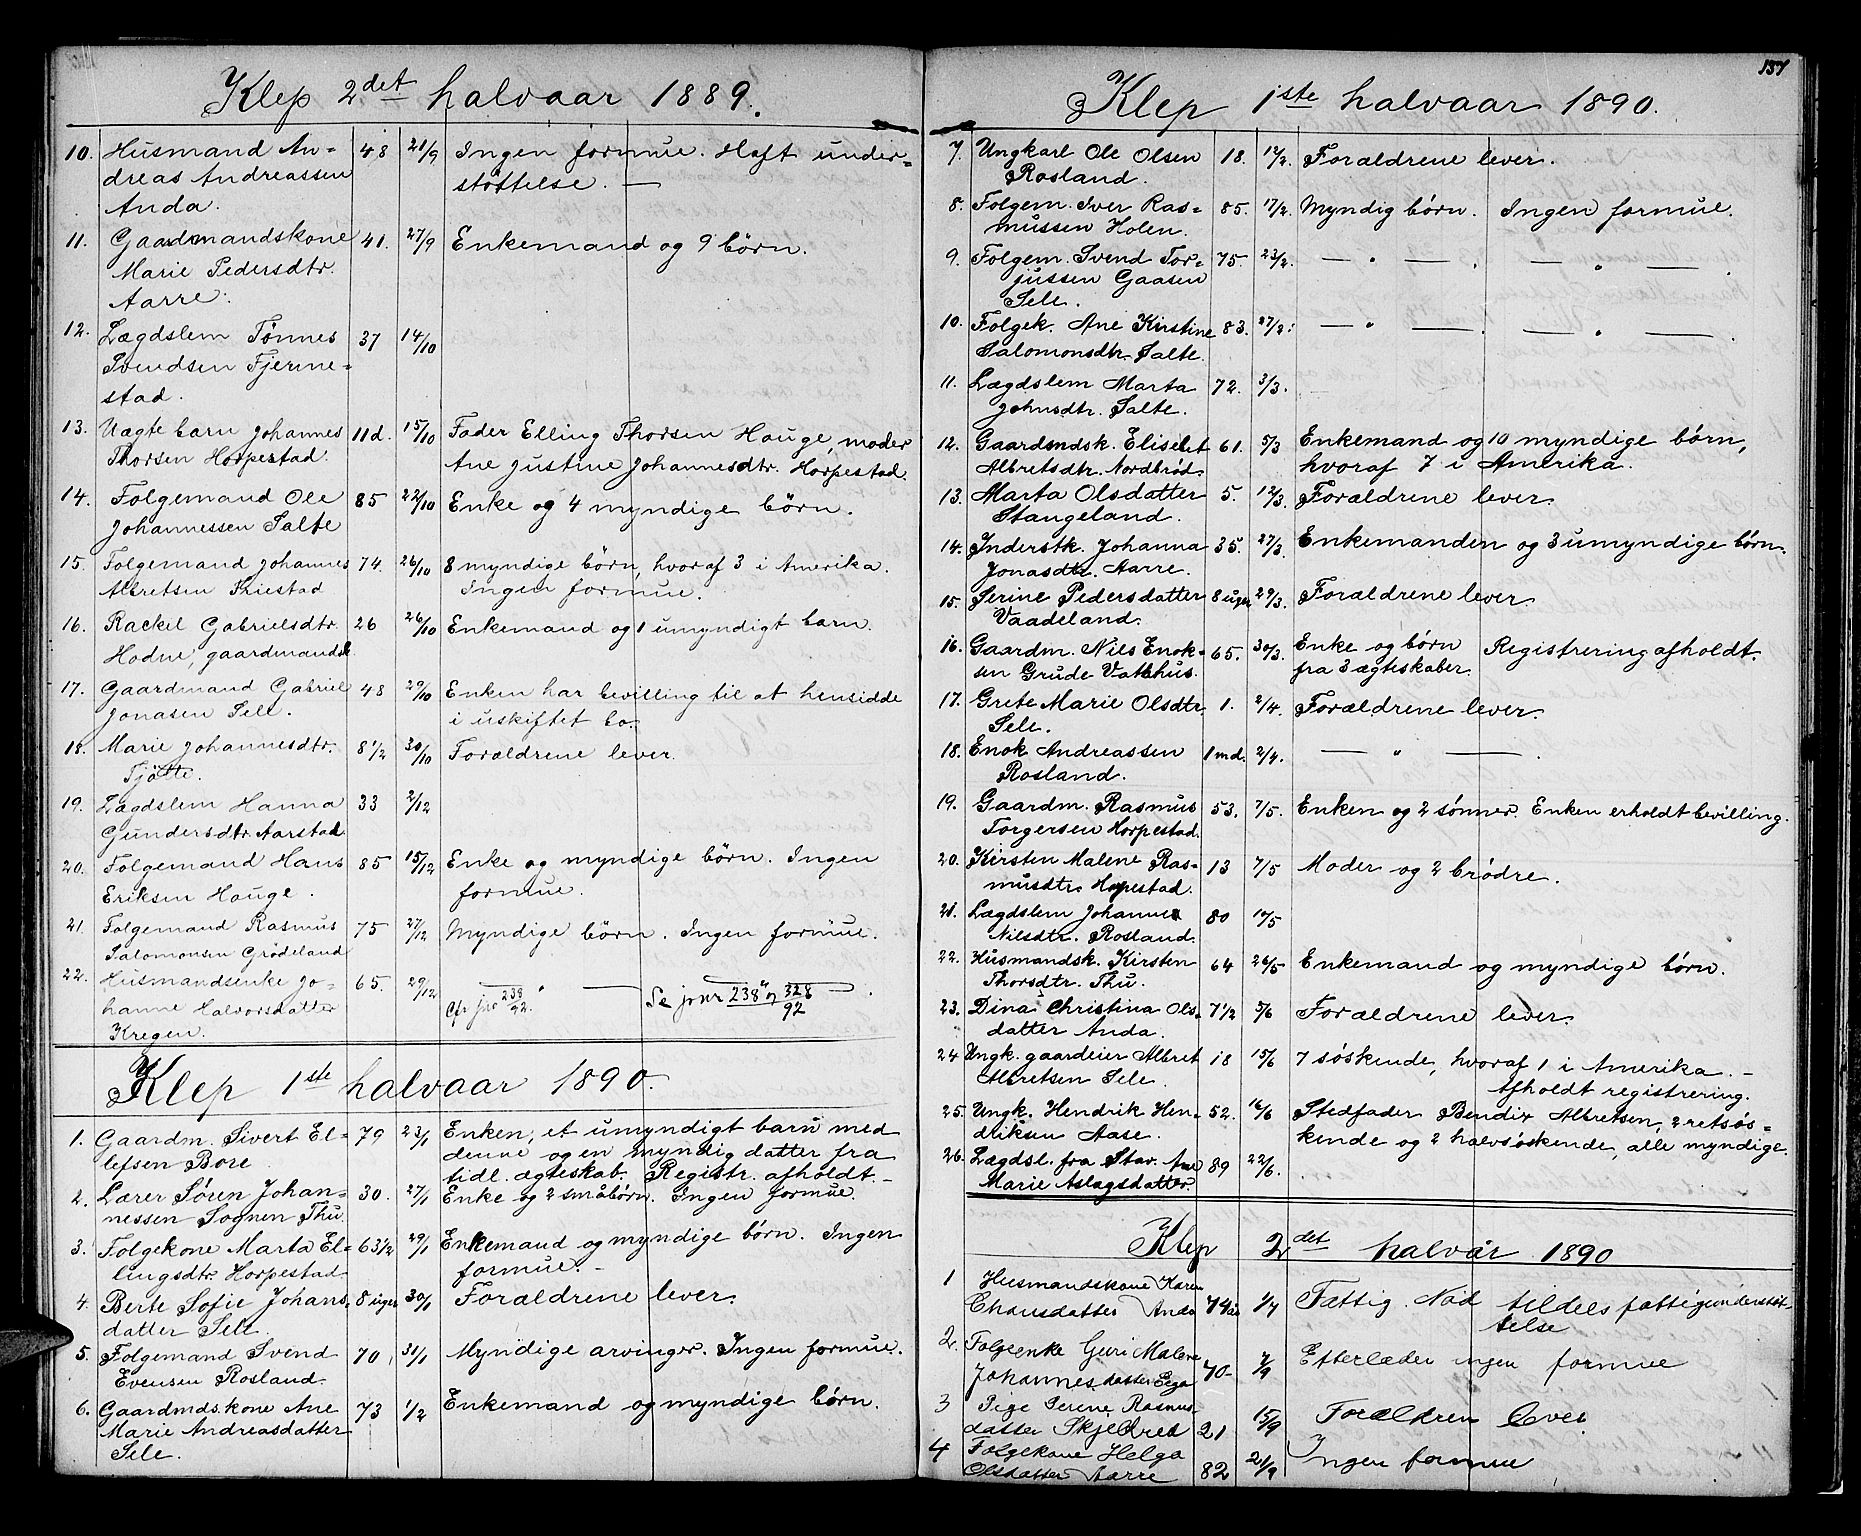 Klep 2det halvaar 1889.
10. Husmand An- 48 21/9 Ingen formue. Haft under-
dreas Andreassen støttelse. —
Anda.
11. Gaardmandskone 41. 27/9 Enkemand og 9 börn.
Marie Pedersdtr.
Aarre.
12. Lægdslem Tønnes 37 14/10
Svendsen Fjerme-
stad.
13. Uægte barn Johannes 11d. 15/10 Fader Elling Thorsen Hauge, moder
Thorsen Horpestad. Ane Justine Johannesdtr. Horpestad.
14. Folgemand Ole 85 22/10 Enke og 4 myndige börn.
Johannessen Salte
15. Folgemand Johannes 74. 26/10 8 myndige börn, hvoraf 3 i Amerika.
Albretsen Friestad Ingen formue.
16. Rackel Gabrielsdtr. 26 26/10 Enkemand og 1 umyndigt barn.
Hodne, gaardmandsk
17. Gaardmand Gabriel 48 29/10 Enken har bevilling til at hensidde
Jonasen Sele. i uskiftet bo.
18. Marie Johannesdtr. 8 1/2 30/10 Forældrene lever.
Tjøtte.
19. Lægdslem Hanna 33 2/12
Gundersdtr. Aarstad
20. Folgemand Hans 85 15/12 Enke og myndige börn. Ingen
Eriksen Hauge. formue.
21. Folgemand Rasmus 75 27/12 Myndige börn. Ingen formue.
Salomonsen Grödeland
22. Husmandsenke Jo- 65. 29/12 — " — — " — .
hanne Halvorsdatter Cfr jnr 238/92. Se jrnr 238 og 328/92
Kregen.
Klep 1ste halvaar 1890.
1. Gaardm. Sivert El- 79 23/1 Enken, et umyndigt barn med
lefsen Bore denne og en myndig datter fra
tidl. ægteskab. Registr. afholdt. –
2. Lærer Sören Johan- 30. 27/1 Enke og 2 småbörn. Ingen formue.
nessen Sognen Thu.
3. Folgekone Marta El- 63 1/2 29/1 Enkemand og myndige börn. Ingen
lingsdtr. Horpestad formue. –
4. Berte Sofie Johans- 8 uger 30/1 Forældrene lever.
datter Sele.
5. Folgemand Svend 70. 31/1 Myndige arvinger. Ingen formue.
Evensen Rosland.
6. Gaardmds.kone Ane 73 1/2 Enkemand og myndige börn.
Marie Andreasdatter
Sele.
157
Klep 1ste halvaar 1890.
7. Ungkarl Ole Olsen 18. 17/2. Forældrene lever.
Rosland.
8. Folgem. Iver Ras- 85. 17/2. Myndig börn. Ingen formue.
mussen Holen.
9. Folgem. Svend Tor- 75. 23/2. — " — — " — .
jussen Gaasen
Sele.
10. Folgek. Ane Kirstine 83. 27/2. — " — — " — .
Salomonsdtr. Salte.
11. Lægdslem Marta 72. 3/3.
Johnsdtr. Salte.
12. Gaardmdsk. Elisebet 61. 5/3 Enkemand og 10 myndige börn,
Albretsdtr. Nordbröd. hvoraf 7 i Amerika.
13. Marta Olsdatter 5. 12/3. Forældrene lever.
Stangeland.
14. Inderstk. Johanna 35. 27/3. Enkemanden og 3 umyndige börn.
Jonasdtr. Aarre.
15. Serine Pedersdatter 8 uger 29/3. Forældrene lever.
Vaadeland.
16. Gaardm. Nils Enok- 65. 30/3. Enke og börn Registrering afholdt.
sen Grude Vatshus. fra 3 ægteskaber.
17. Grete Marie Olsdtr. 1. 2/4. Forældrene lever.
Sele.
18. Enok Andreassen 1 md. 2/4. — " — .
Rosland.
19. Gaardm. Rasmus 53. 7/5. Enken og 2 sönner. Enken erholdt bevilling.
Torgersen Horpestad.
20. Kirsten Malene Ras- 13 7/5 Moder og 2 brödre.
musdtr. Horpestad.
21. Lægdslem Johanne 80 19/5
Nilsdtr. Rosland.
22. Husmandsk. Kirsten 64 26/5 Enkemand og myndige börn.
Thorsdtr. Thu.
23. Dina Christina Ols- 7 1/2 5/6 Forældrene lever.
datter Anda.
24 Ungk. gaardeier Albret 18 15/6 7 söskende, hvoraf 1 i Amerika. –
Albretsen Sele. Afholdt registrering.
25. Ungk. Hendrik Hen- 52. 16/6 Stedfader Bendix Albretsen, 2 retsös-
driksen Aase. kende og 2 halvsöskende, alle myndige.
26. Lægdsl. fra Stav. Ane 89 22/6.
Marie Aslagsdatter.
Klep 2det halvår 1890
1 Husmandskone Karen
datter Anda 74 1/7 Fattig. Nød tildels fattigunderstöt-
telse
2. Folgeenke Guri Malene
Johannesdatter 70 7/9 Efterlader ingen formue
3 Pige Serene Rasmus-
datter 21 15/9 Forældren lever
4 Folgekone Helga
Olsdatter Aarre 82 21/9 Ingen formue